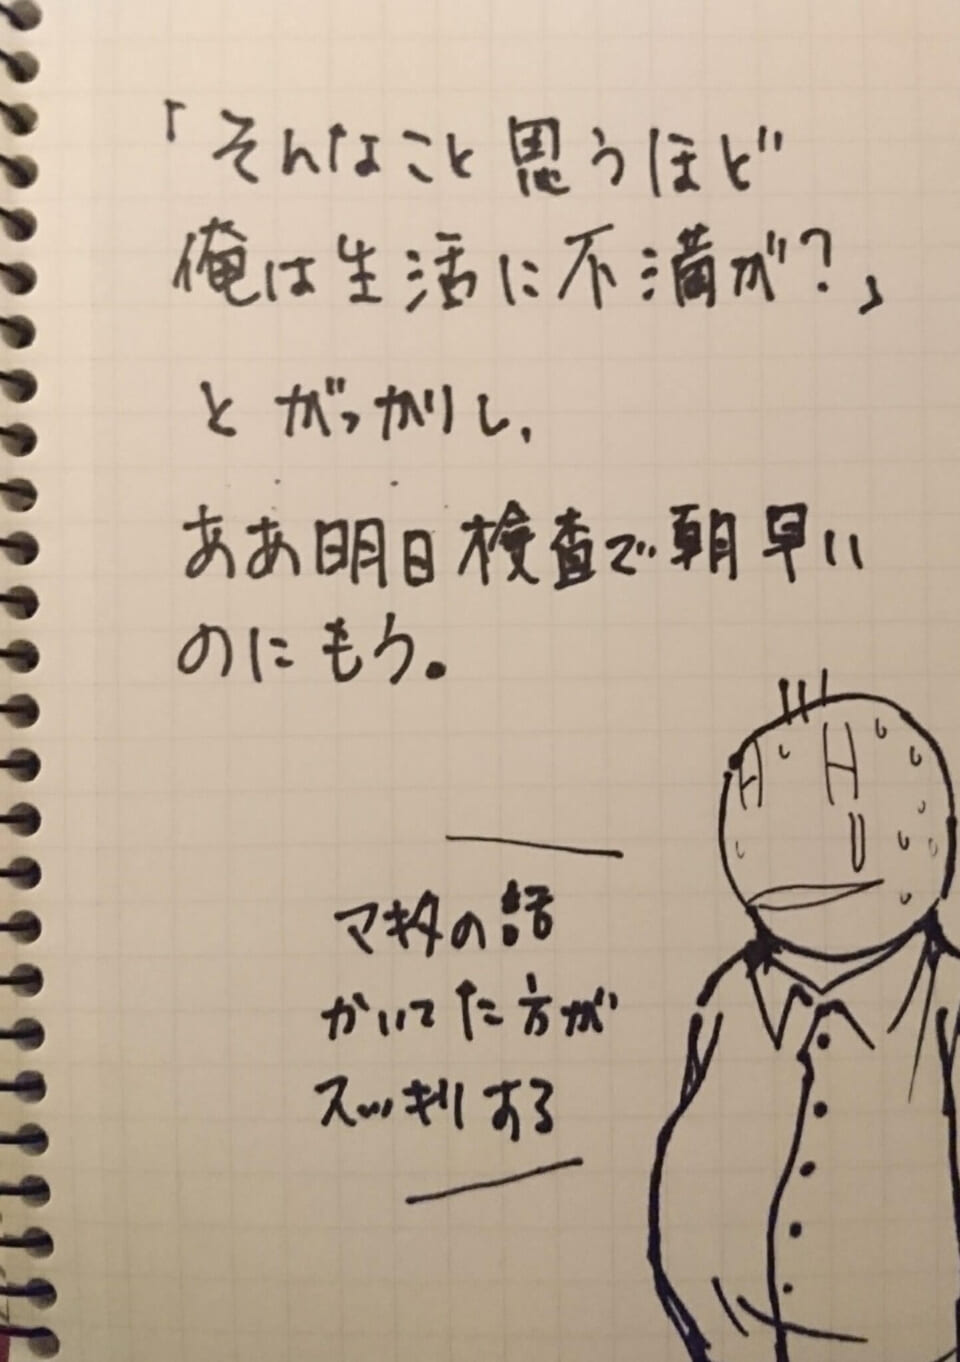 「そんなこと思うほど
俺は生活に不満が？」
とがっかりし、
ああ明日検査で朝早い
のにもう。
マキタの話
かいてた方が
スッキリする